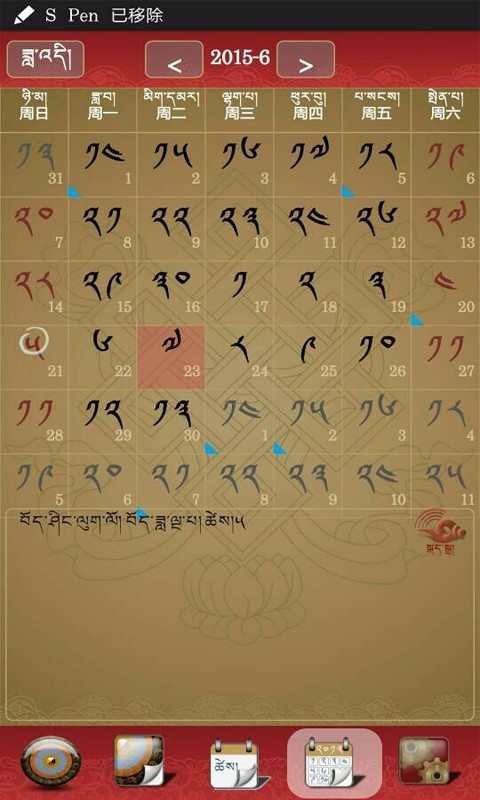 S Pen 已移除
ཟླ་འདི། < 2015-6 >
ཉི་མ། ཟླ་བ། མིག་དམར། ལྷག་པ། ཕུར་བུ། པ་སངས། སྤེན་པ།
周日 周一 周二 周三 周四 周五 周六
༡༣ ༡༤ ༡༥ ༡༦ ༡༧ ༡༨ ༡༩
31 1 2 3 4 5 6
༢༠ ༢༡ ༢༢ ༢༣ ༢༤ ༢༦ ༢༧
7 8 9 10 11 12 13
༢༨ ༢༩ ༣༠ ༡ ༢ ༣ ༤
14 15 16 17 18 19 20
༥ ༦ ༧ ༨ ༩ ༡༠ ༡༡
21 22 23 24 25 26 27
༡༡ ༡༢ ༡༣ ༡༤ ༡༥ ༡༦ ༡༨
28 29 30 1 2 3 4
༡༩ ༢༠ ༢༡ ༢༢ ༢༣ ༢༤ ༢༥
5 6 7 8 9 10 11
བོད་ཤིང་ལུག་ལོ། བོད་ཟླ་ལྔ་པ། ཚེས།༥
སྐད་སྒྲ།
ཚེས། ༢༠༡༣